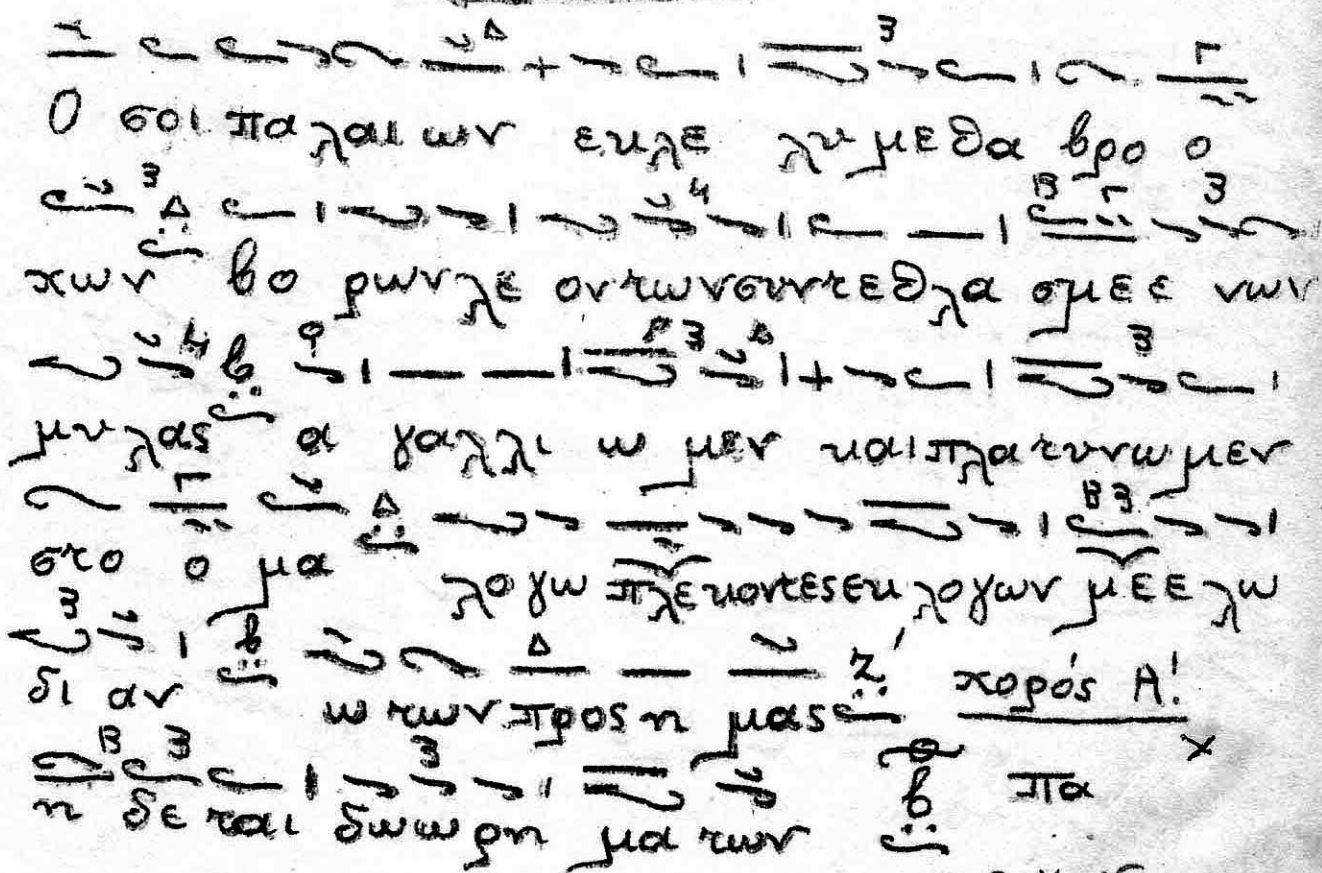 Ο σοι πα λαι ων εκλε λυ μεθα βρο ο
χων βο ρων λε οντων συντεθλα σμε ε νων
μυ λας α γαλλι ω μεν και πλα τυνω μεν
στο ο μα λο γω πλεκοντες εκ λογων με ε λω
δι αν ω των προς η μας χορός Α!
η δε ται δω ω ρη μα των πα